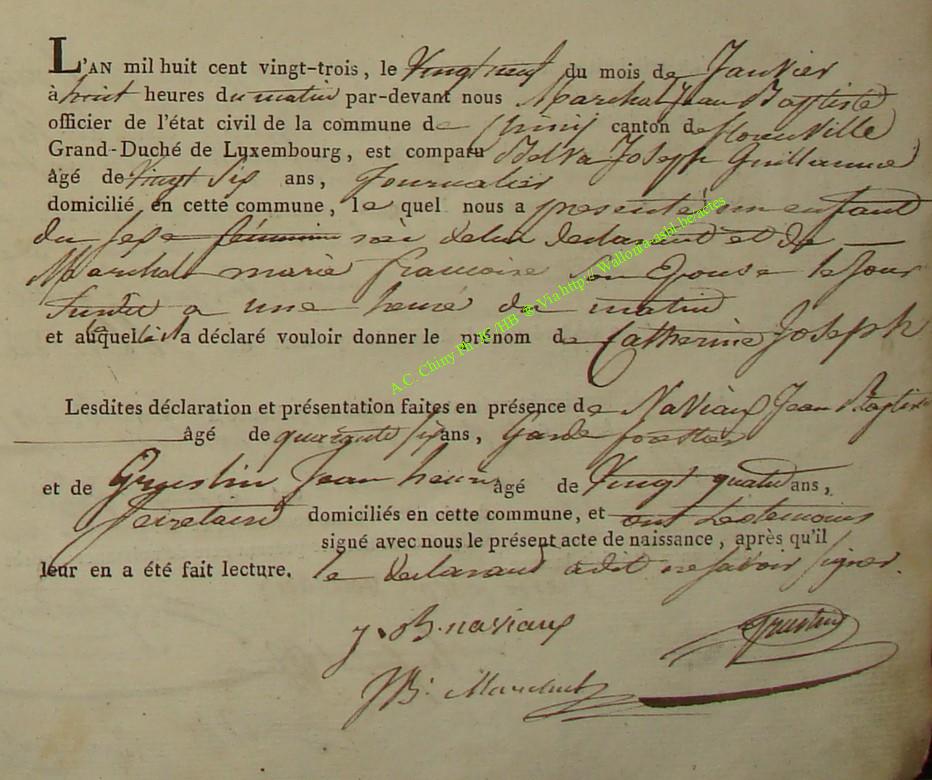 L'AN mil huit cent vingt-trois, le Vingt neuf du mois de Janvier
à huit heures du matin par-devant nous Marchal Jean Baptiste
officier de l'état civil de la commune de Chiny canton de florenville
Grand-Duché de Luxembourg, est comparu Belva Joseph Guillaume
âgé de vingt Six ans, Journalier
domicilié en cette commune, le quel nous a presenté un enfant
du sexe féminin née delui declarant et de
Marchal marie francoise son Epouse le Jour
a une heure du matin
et auquel il a déclaré vouloir donner le prénom de Catherine Joseph
Lesdites déclaration et présentation faites en présence de Naviaux Jean Baptiste
âgé de quarante six ans, garde forestier
et de Grustin Jean henry âgé de Vingt quatre ans,
Secretaire domiciliés en cette commune, et ont Lestemoins
signé avec nous le présent acte de naissance, après qu'il
leur en a été fait lecture. le declarant adit ne savoir signer.
J. B. naviaux
Grustin
JB: Marchal
A.C. Chiny Ph. /HB @ Via http:// Wallonia-asbl.heractes